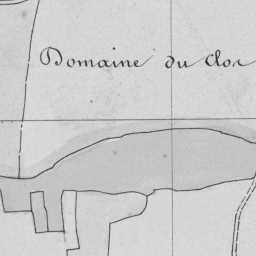 Domaine du Clos